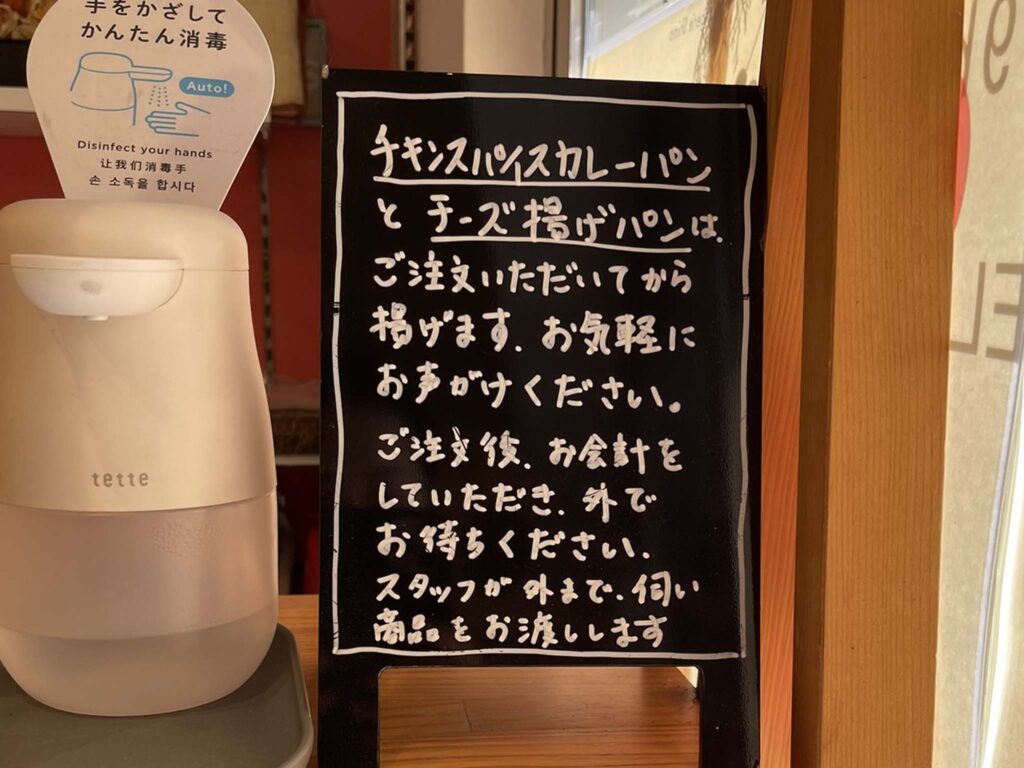 手をかざして
かんたん消毒
Auto!
Disinfect your hands
让我们消毒手
손 소독을 합시다
tette
チキンスパイスカレーパン
と チーズ揚げパンは、
ご注文いただいてから
揚げます。お気軽に
お声がけください。
ご注文後、お会計を
していただき、外で
お待ちください。
スタッフが外まで、伺い
商品をお渡しします